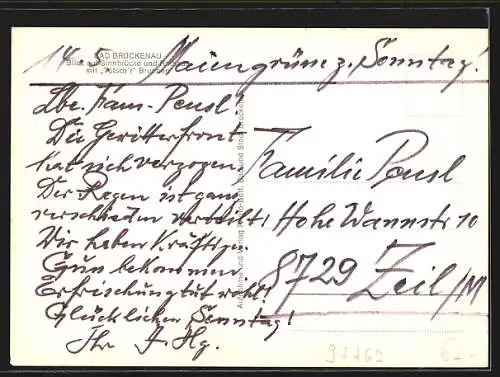 BAD BRÜCKENAU
Blick auf Sinnbrücke und
mit "Tötsch'r" Brunnen
14. 5. Maiengrüne z. Sonntag!
Lbe. Fam. Pensl!
Die Gewitterfront
hat sich verzogen
Der Regen ist ganz
verschieden verteilt!
Wir haben kräftige
Grün bekommen
Erfrischung tut wohl!
Glücklichen Sonntag!
Ihr J. Hg.
Familie Pensl
Hohe Wannstr 10
8729 Zeil/M
97769